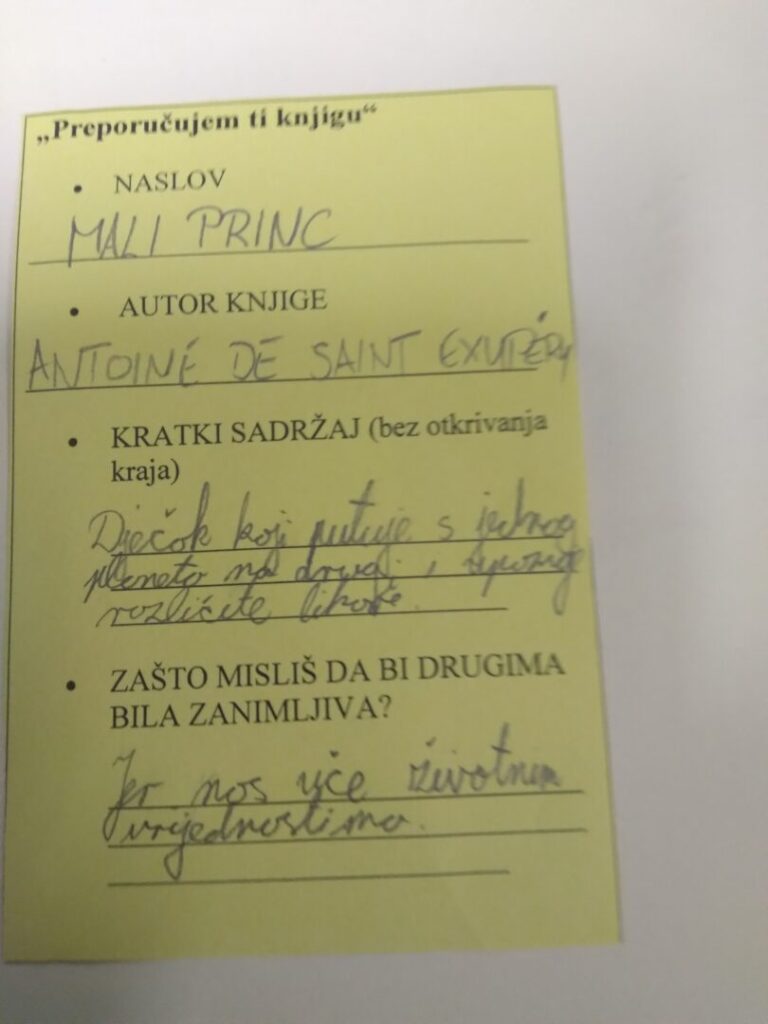 „Preporučujem ti knjigu“
• NASLOV
MALI PRINC
• AUTOR KNJIGE
ANTOINE DE SAINT EXUPÉRY
• KRATKI SADRŽAJ (bez otkrivanja
kraja)
Dječak koji putuje s jednog
planeta na drugi i upoznaje
različite likove.
• ZAŠTO MISLIŠ DA BI DRUGIMA
BILA ZANIMLJIVA?
Jer nas uče životnim
vrijednostima.